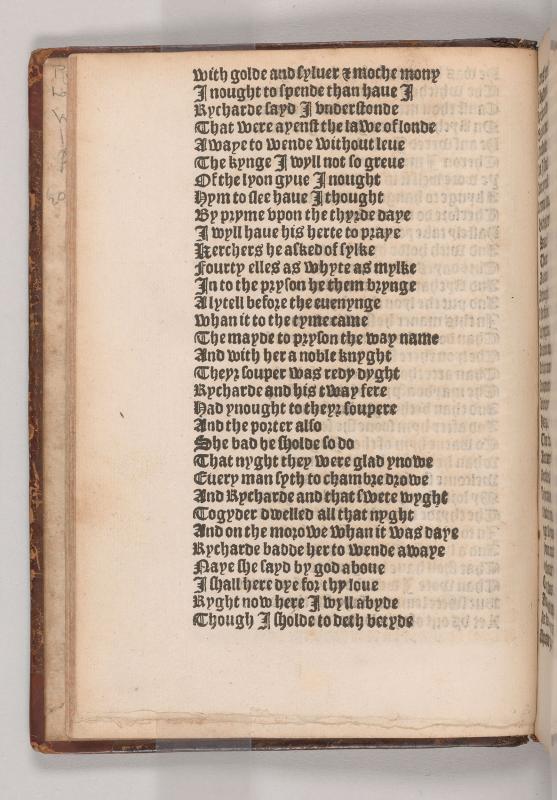 with golde and syluer & moche mony
I nought to spende than haue I
Rycharde sayd I vnderstonde
That were ayenst the lawe of londe
Awaye to wende without leue
The kynge I wyll not so greue
Of the lyon gyue I nought
Hym to slee haue I thought
By pryme vpon the thyrde daye
I wyll haue his herte to praye
Kerchers he asked of sylke
Fourty elles as whyte as mylke
In to the pryson he them brynge
A lytell before the euenynge
whan it to the tyme came
The mayde to pryson the way name
And with her a noble knyght
Theyr souper was redy dyght
Rycharde and his tway fere
Had ynought to theyr soupere
And the porter also
She bad he sholde so do
That nyght they were glad ynowe
Euery man syth to chambre drowe
And Rycharde and that swete wyght
Togyder dwelled all that nyght
And on the morowe whan it was daye
Rycharde badde her to wende awaye
Naye she sayd by god aboue
I shall here dye for thy loue
Ryght now here I wyll abyde
Though I sholde to deth betyde